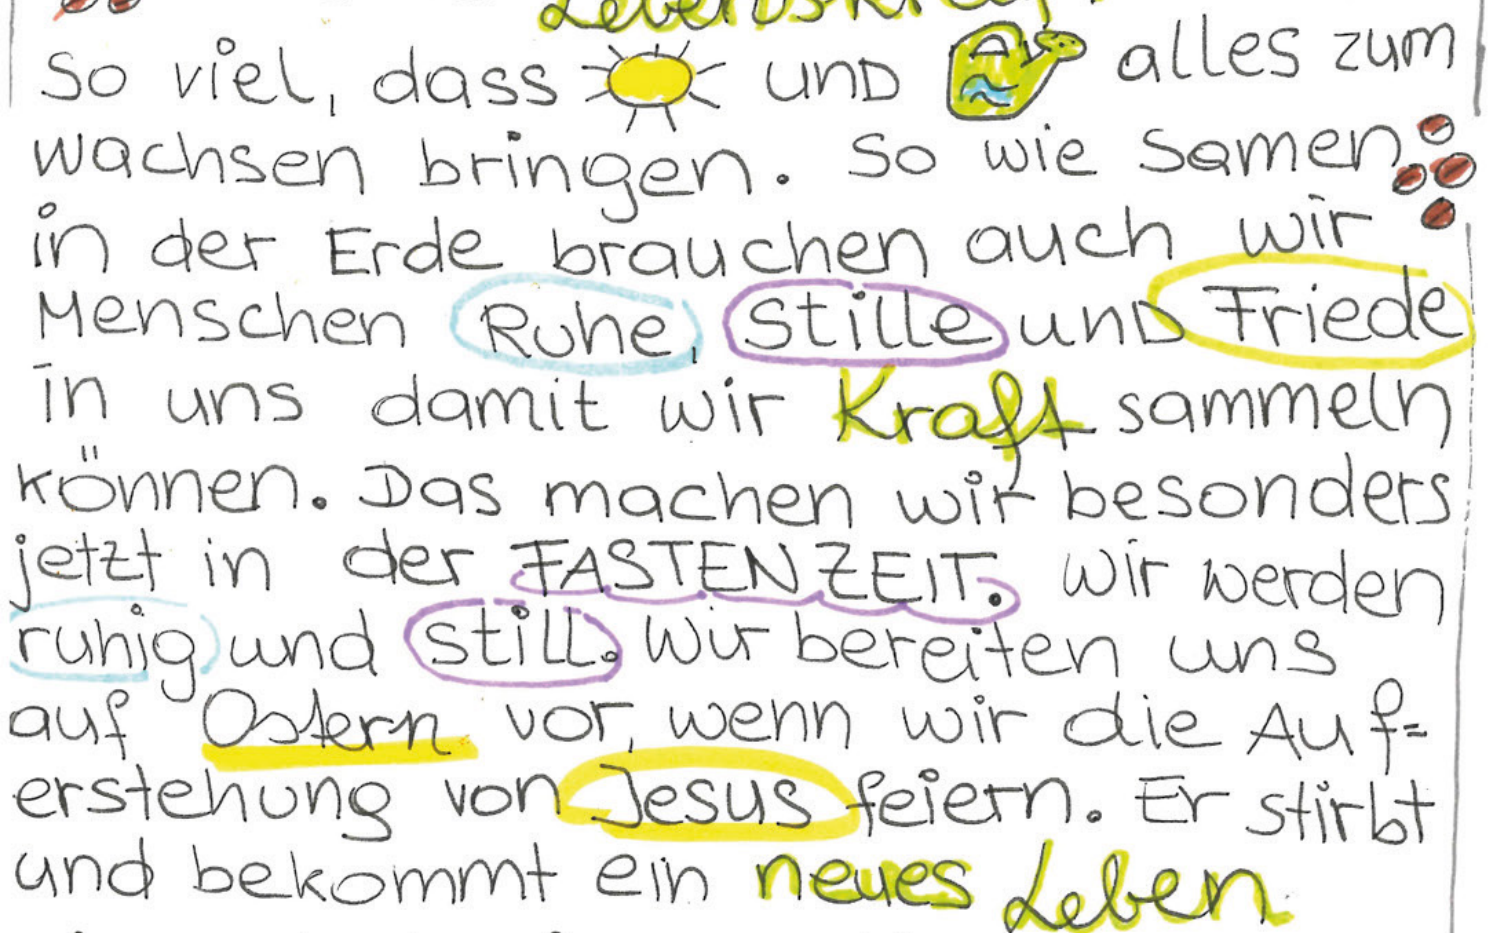 Lebenskraft
So viel, dass und alles zum
wachsen bringen. So wie Samen
in der Erde brauchen auch wir
Menschen Ruhe, Stille und Friede
in uns damit wir Kraft sammeln
können. Das machen wir besonders
jetzt in der FASTENZEIT. Wir werden
ruhig und still. Wir bereiten uns
auf Ostern vor, wenn wir die Auf=
erstehung von Jesus feiern. Er stirbt
und bekommt ein neues Leben